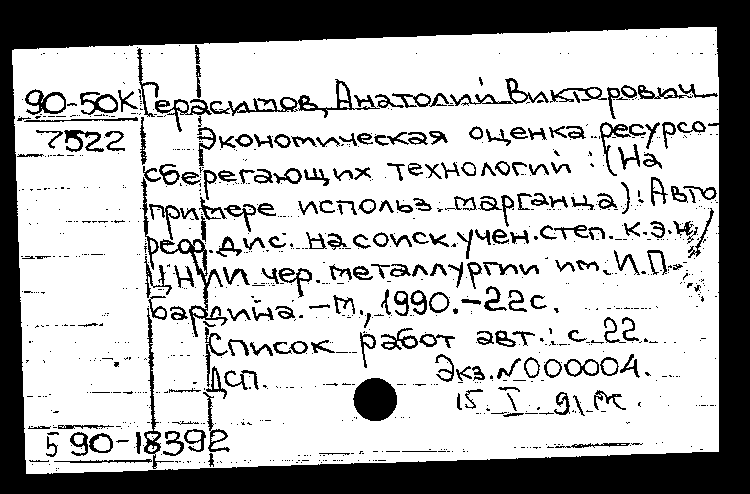 90-50К Герасимов, Анатолий Викторович
7522 Экономическая оценка ресурсо-
сберегающих технологий : (На
примере использ. марганца) : Авто
реф. дис. на соиск. учен. степ. к.э.н/
ЦНИИ чер. металлургии им. И.П.
Бардина. - М., 1990. - 22 с.
Список работ авт.: с. 22.
ДСП. Экз. N 000004.
15. I. 91
5 90-18392